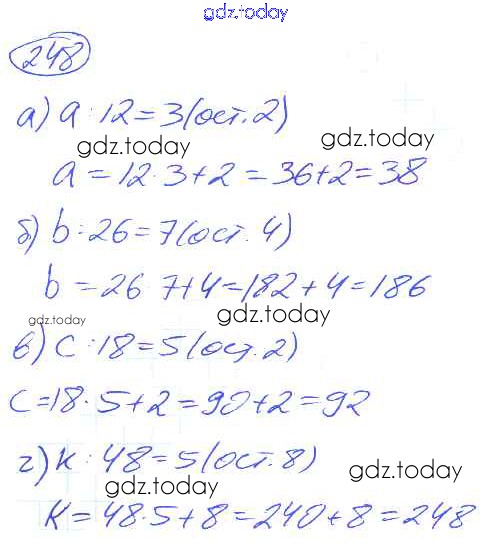 gdz.today
248
а) a : 12 = 3 (ост. 2)
gdz.today
gdz.today
a = 12 · 3 + 2 = 36 + 2 = 38
б) b : 26 = 7 (ост. 4)
b = 26 · 7 + 4 = 182 + 4 = 186
gdz.today
gdz.today
в) c : 18 = 5 (ост. 2)
c = 18 · 5 + 2 = 90 + 2 = 92
г) k : 48 = 5 (ост. 8)
gdz.today
gdz.today
k = 48 · 5 + 8 = 240 + 8 = 248